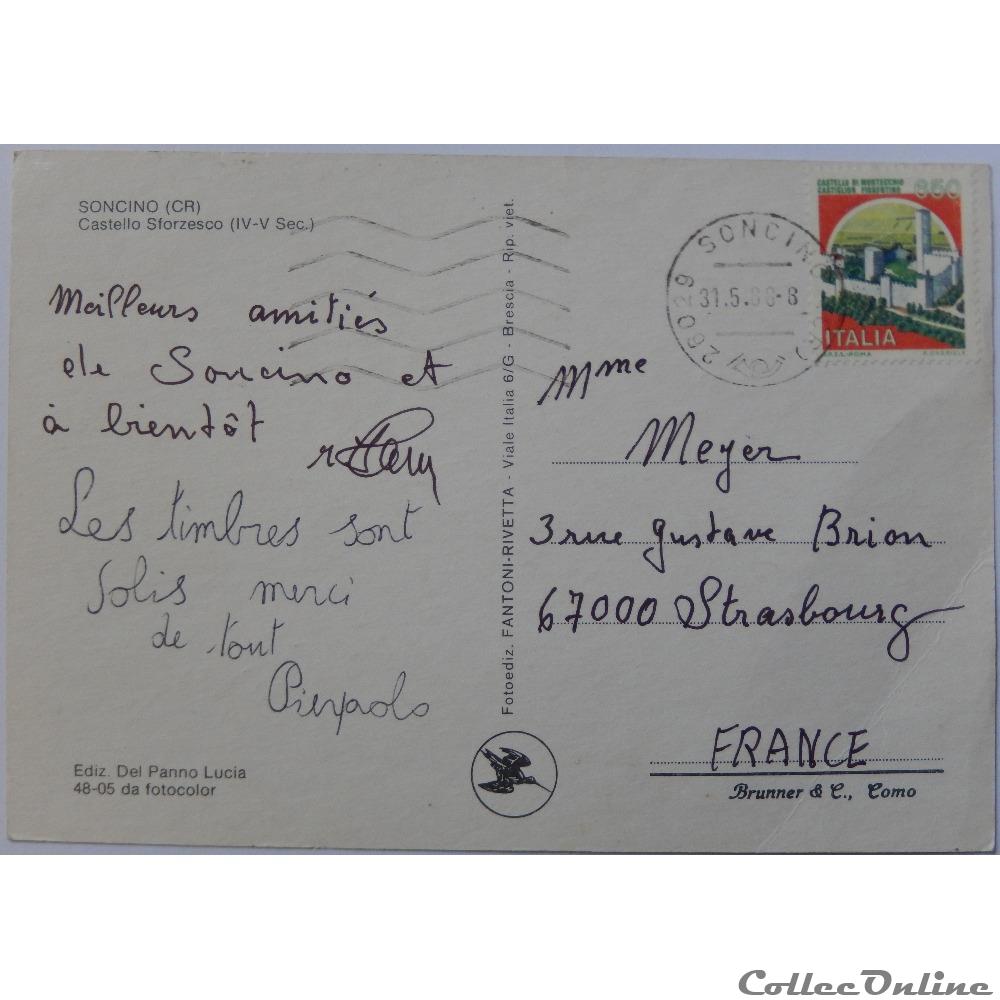 SONCINO (CR)
Castello Sforzesco (IV-V Sec.)
Meilleurs amitiés
de Soncino et
à bientôt
Les timbres sont
Jolis merci
de tout
Pierpaolo
Ediz. Del Panno Lucia
48-05 da fotocolor
Fotoediz. FANTONI-RIVETTA - Viale Italia 6/G - Brescia - Rip. viet.
26029 SONCINO
31.5.88-8
CASTELLO DI MONTECCHIO
CASTIGLION FIORENTINO
650
ITALIA
Mme
Meyer
3 rue Gustave Brion
67000 Strasbourg
FRANCE
Brunner & C., Como
CollecOnline